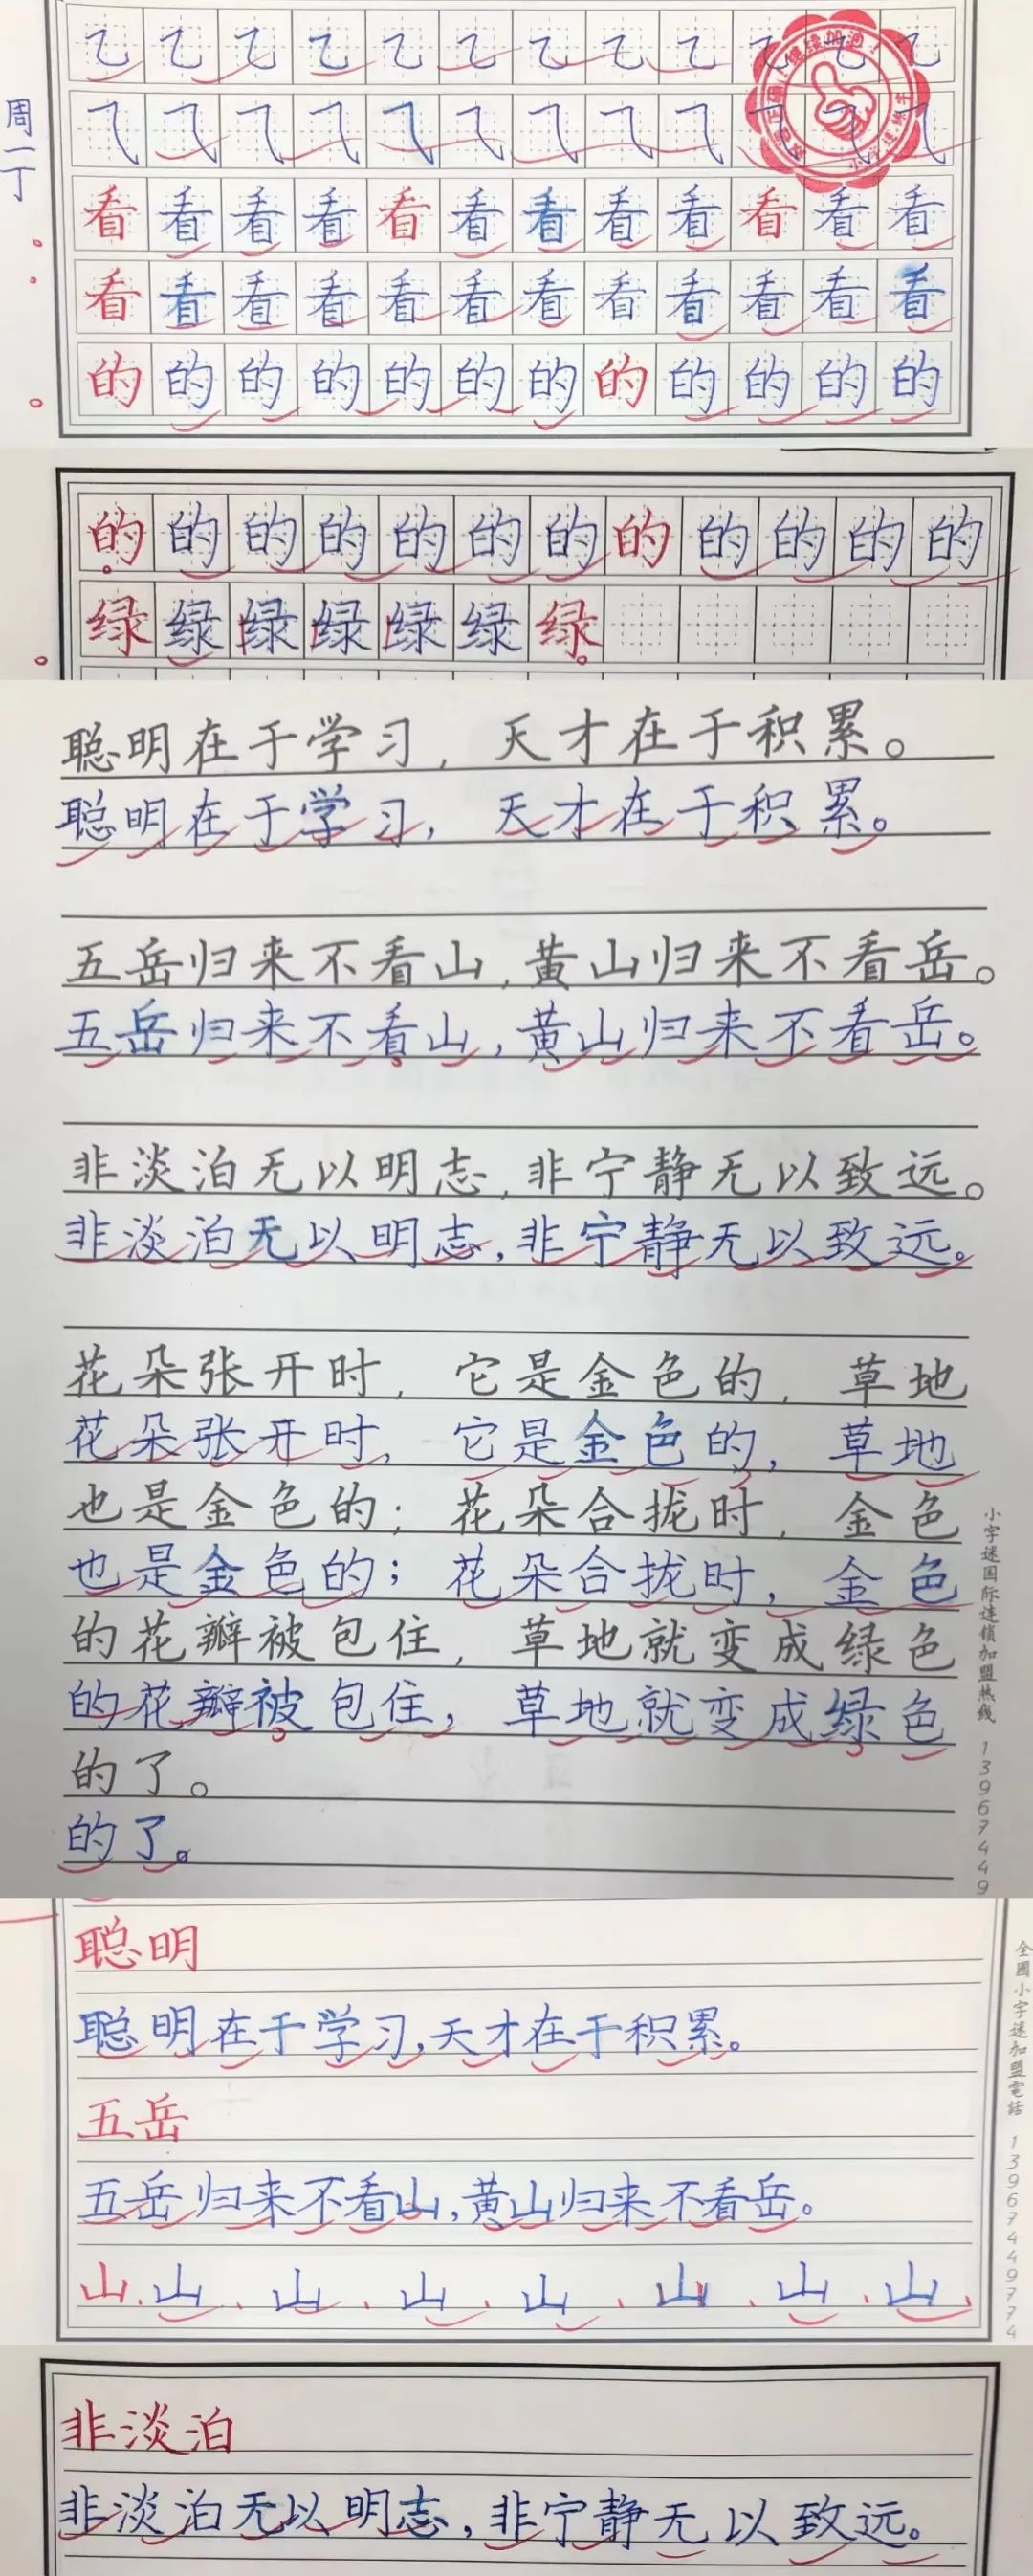 周一丁
乙 乙 乙 乙 乙 乙 乙 乙 乙 乙 乙 乙
⺄ ⺄ ⺄ ⺄ ⺄ ⺄ ⺄ ⺄ ⺄ ⺄ ⺄ ⺄
看 看 看 看 看 看 看 看 看 看 看 看
看 看 看 看 看 看 看 看 看 看 看 看
的 的 的 的 的 的 的 的 的 的 的 的
的 的 的 的 的 的 的 的 的 的 的 的
绿 绿 绿 绿 绿 绿 绿
聪明在于学习,天才在于积累。
聪明在于学习,天才在于积累。
五岳归来不看山,黄山归来不看岳。
五岳归来不看山,黄山归来不看岳。
非淡泊无以明志,非宁静无以致远。
非淡泊无以明志,非宁静无以致远。
花朵张开时,它是金色的,草地
花朵张开时,它是金色的,草地
也是金色的;花朵合拢时,金色
也是金色的;花朵合拢时,金色
的花瓣被包住,草地就变成绿色
的花瓣被包住,草地就变成绿色
的了。
的了。
小字迷国际连锁加盟热线 13967449
聪明
聪明在于学习,天才在于积累。
五岳
五岳归来不看山,黄山归来不看岳。
山.山 山.山.山.山.山.山.
全國小字迷加盟電話 13967449774
非淡泊
非淡泊无以明志,非宁静无以致远。